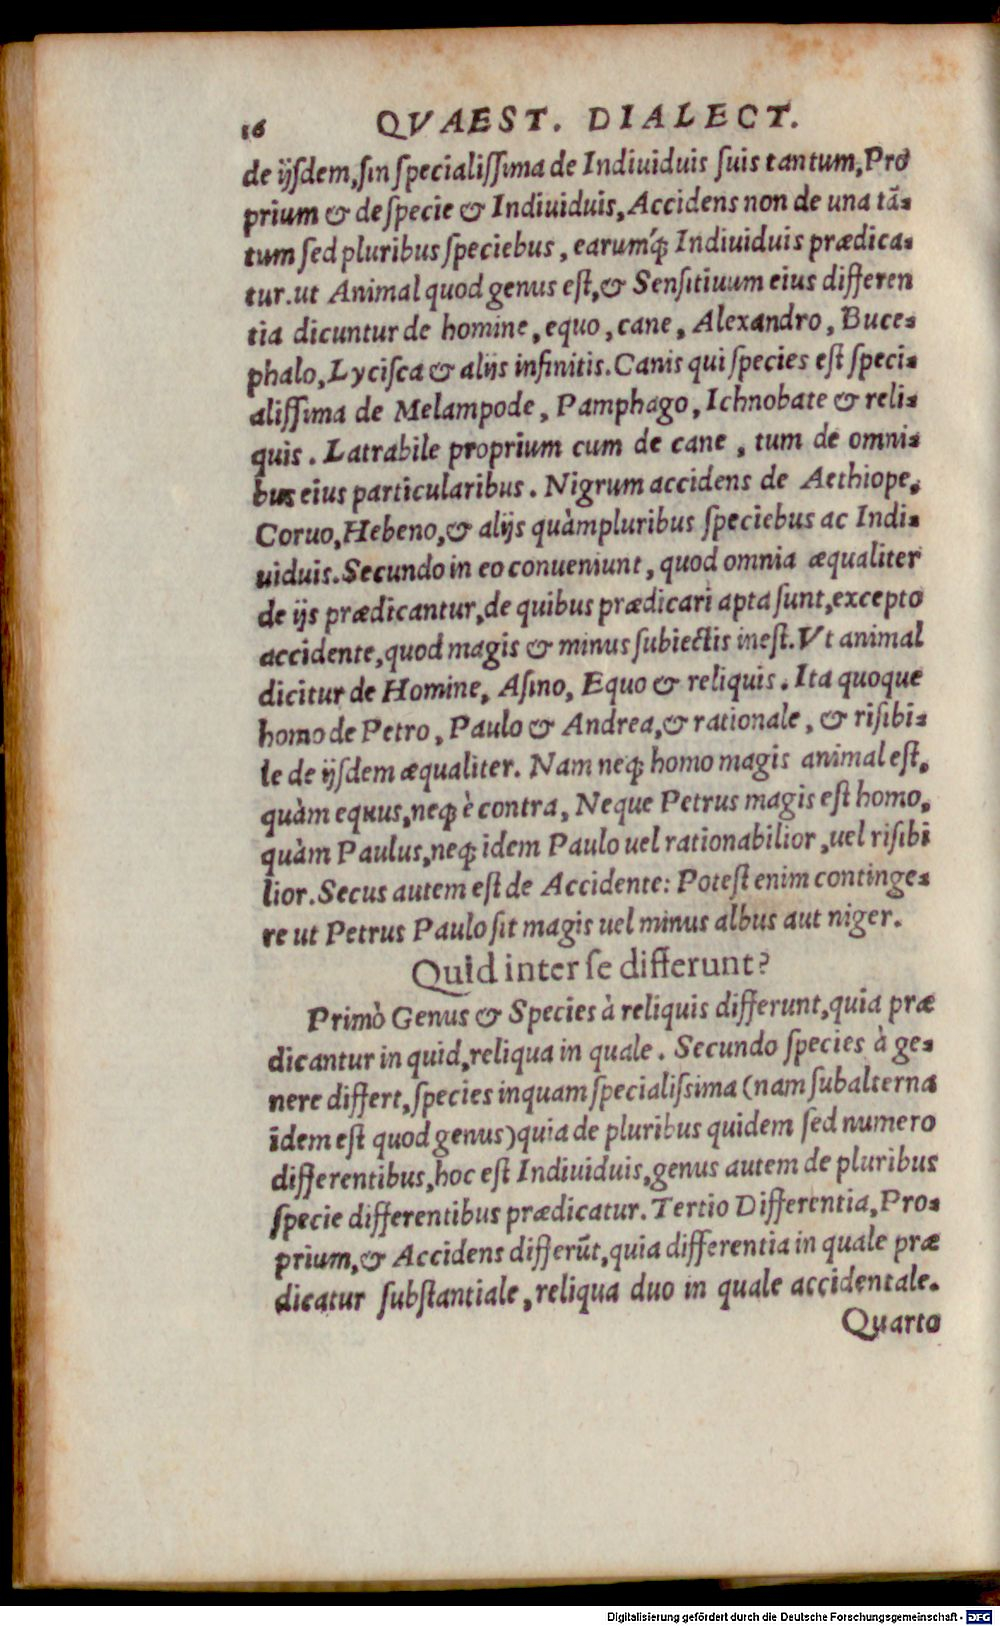 16 QVAEST. DIALECT.
de ijſdem, ſin ſpecialiſſima de Indiuiduis ſuis tantum, Pro
prium & de ſpecie & Indiuiduis, Accidens non de una tã⸗
tum ſed pluribus ſpeciebus, earumq́; Indiuiduis prædica⸗
tur. ut Animal quod genus eſt, & Senſitiuum eius differen
tia dicuntur de homine, equo, cane, Alexandro, Buce⸗
phalo, Lyciſca & alijs infinitis. Canis qui ſpecies eſt ſpeci⸗
aliſſima de Melampode, Pamphago, Ichnobate & reli⸗
quis. Latrabile proprium cum de cane, tum de omni⸗
bus eius particularibus. Nigrum accidens de Aethiope,
Coruo, Hebeno, & alijs quàmpluribus ſpeciebus ac Indi⸗
uiduis. Secundo in eo conueniunt, quod omnia æqualiter
de ijs prædicantur, de quibus prædicari apta ſunt, excepto
accidente, quod magis & minus ſubiectis ineſt. Vt animal
dicitur de Homine, Aſino, Equo & reliquis. Ita quoque
homo de Petro, Paulo & Andrea, & rationale, & riſibi⸗
le de ijſdem æqualiter. Nam neq; homo magis animal eſt,
quàm equus, neq; è contra, Neque Petrus magis eſt homo,
quàm Paulus, neq; idem Paulo uel rationabilior, uel riſibi
lior. Secus autem eſt de Accidente: Poteſt enim continge⸗
re ut Petrus Paulo ſit magis uel minus albus aut niger.
Quid inter ſe differunt?
Primò Genus & Species à reliquis differunt, quia præ
dicantur in quid, reliqua in quale. Secundo ſpecies à ge⸗
nere differt, ſpecies inquam ſpecialiſsima (nam ſubalterna
idem eſt quod genus) quia de pluribus quidem ſed numero
differentibus, hoc eſt Indiuiduis, genus autem de pluribus
ſpecie differentibus prædicatur. Tertio Differentia, Pro⸗
prium, & Accidens differũt, quia differentia in quale præ
dicatur ſubſtantiale, reliqua duo in quale accidentale.
Quarto
Digitalisierung gefördert durch die Deutsche Forschungsgemeinschaft - DFG